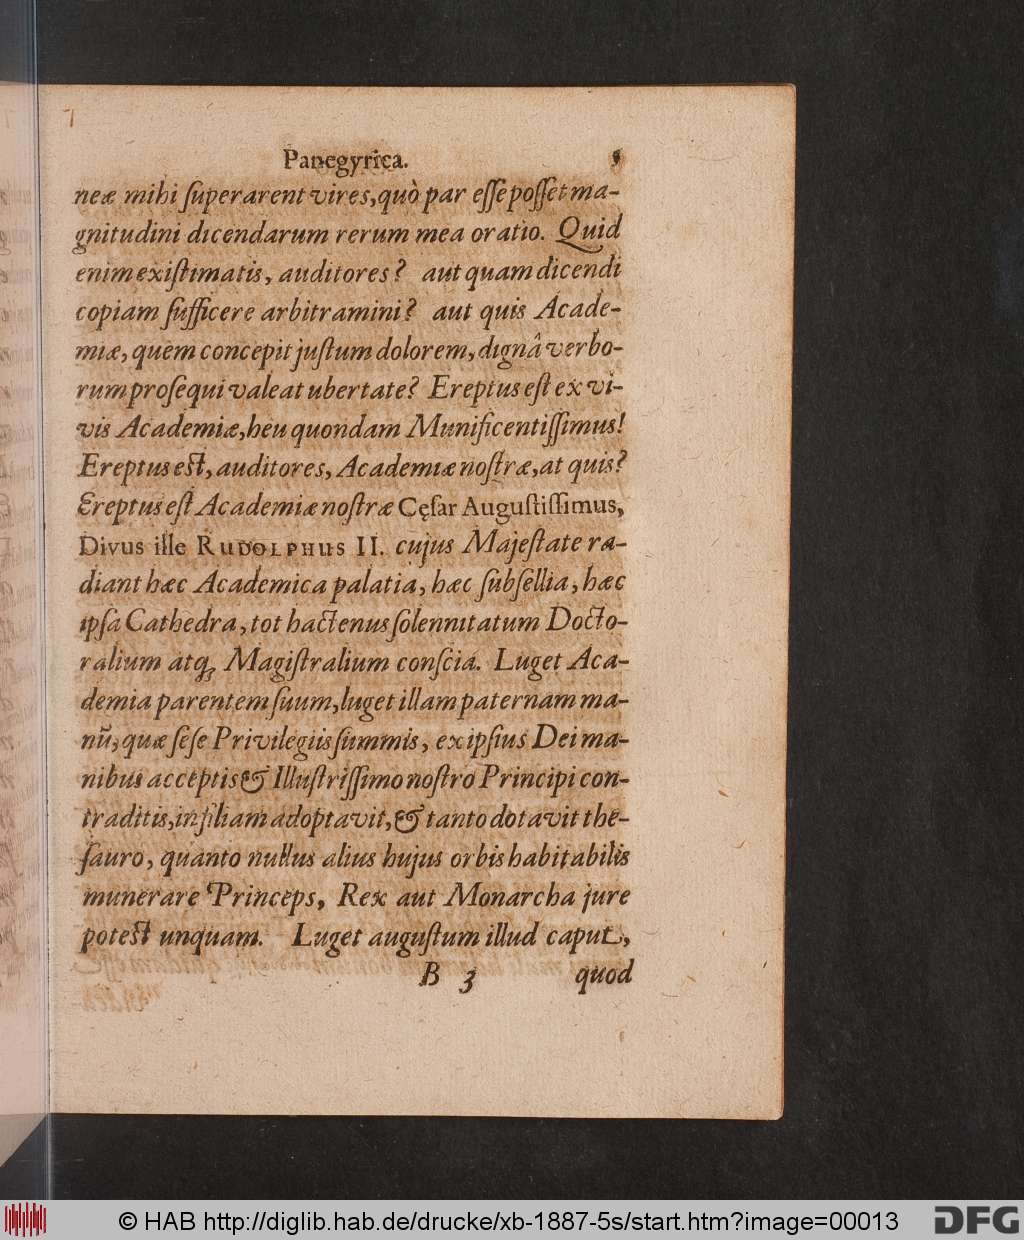 Panegyrica.
neæ mihi ſuperarent vires, quò par eſſe poſſet ma-
gnitudini dicendarum rerum mea oratio. Quid
enim exiſtimatis, auditores? aut quam dicendi
copiam ſufficere arbitramini? aut quis Acade-
miæ, quem concepit juſtum dolorem, dignâ verbo-
rum proſequi valeat ubertate? Ereptus eſt ex vi-
vis Academiæ, heu quondam Munificentiſſimus!
Ereptus est, auditores, Academiæ noſtræ, at quis?
Ereptus eſt Academiæ noſtræ Cęſar Auguſtiſſimus,
Divus ille RUDOLPHUS II. cujus Majeſtate ra-
diant hæc Academica palatia, hæc ſubſellia, hæc
ipſa Cathedra, tot hactenus ſolennitatum Docto-
ralium atq́; Magiſtralium conſcia. Luget Aca-
demia parentem ſuum, luget illam paternam ma-
nū, quæ ſeſe Privilegiis ſummis, ex ipſius Dei ma-
nibus acceptis & Illuſtriſſimo noſtro Principi con-
traditis, in filiam adoptavit, & tanto dotavit the-
ſauro, quanto nullus alius hujus orbis habitabilis
munerare Princeps, Rex aut Monarcha jure
potest unquam. Luget auguſtum illud caput,
B 3 quod
© HAB http://diglib.hab.de/drucke/xb-1887-5s/start.htm?image=00013 DFG